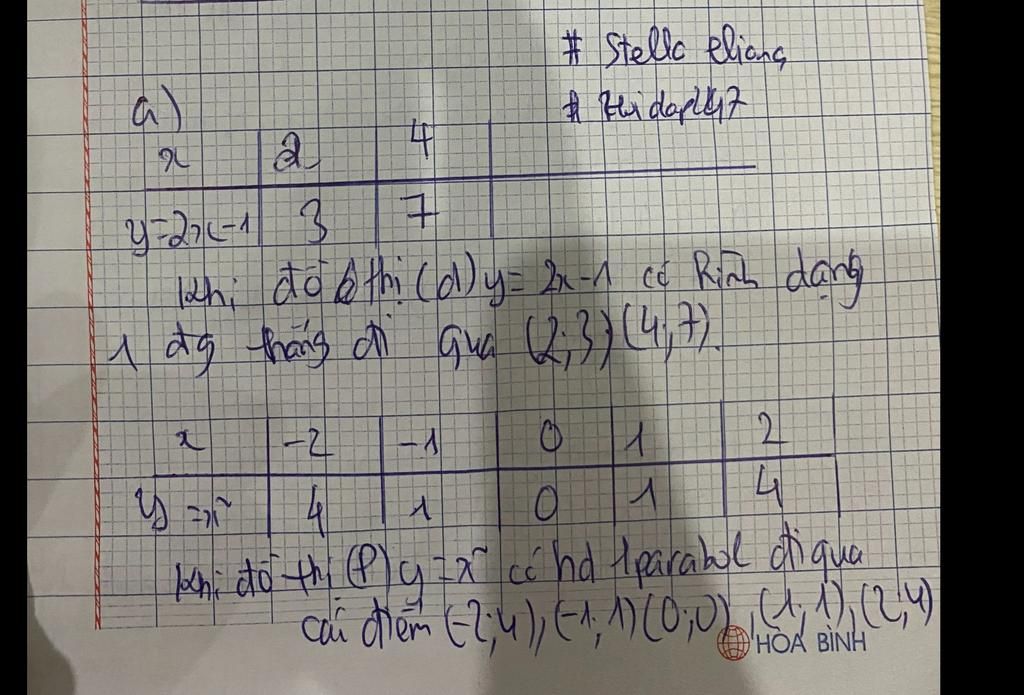 # Stella
a)
x 2 4
y=2x-1 3 7
Khi đó đồ thị (d) y= 2x-1 có hình dạng
1 đg thẳng đi qua (2;3) (4;7).
x -2 -1 0 1 2
y =x² 4 1 0 1 4
Khi đồ thị (P) y = x² có hd 1 parabol đi qua
các điểm (-2;4), (-1;1) (0;0), (1;1), (2;4)
HÒA BÌNH